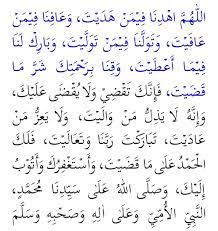 اللّٰهُمَّ اهْدِنَا فِيْمَنْ هَدَيْتَ، وَعَافِنَا فِيْمَنْ
عَافَيْتَ، وَتَوَلَّنَا فِيْمَنْ تَوَلَّيْتَ، وَبَارِكْ لَنَا
فِيْمَا أَعْطَيْتَ، وَقِنَا بِرَحْمَتِكَ شَرَّ مَا
قَضَيْتَ، فَإِنَّكَ تَقْضِيْ وَلَا يُقْضَى عَلَيْكَ،
وَإِنَّهُ لَا يَذِلُّ مَنْ وَالَيْتَ، وَلَا يَعِزُّ مَنْ
عَادَيْتَ، تَبَارَكْتَ رَبَّنَا وَتَعَالَيْتَ، فَلَكَ
الْحَمْدُ عَلَى مَا قَضَيْتَ، وَأَسْتَغْفِرُكَ وَأَتُوْبُ
إِلَيْكَ، وَصَلَّى اللهُ عَلَى سَيِّدِنَا مُحَمَّدٍ،
النَّبِيِّ الْأُمِّيِّ وَعَلَى اٰلِهِ وَصَحْبِهِ وَسَلَّمَ